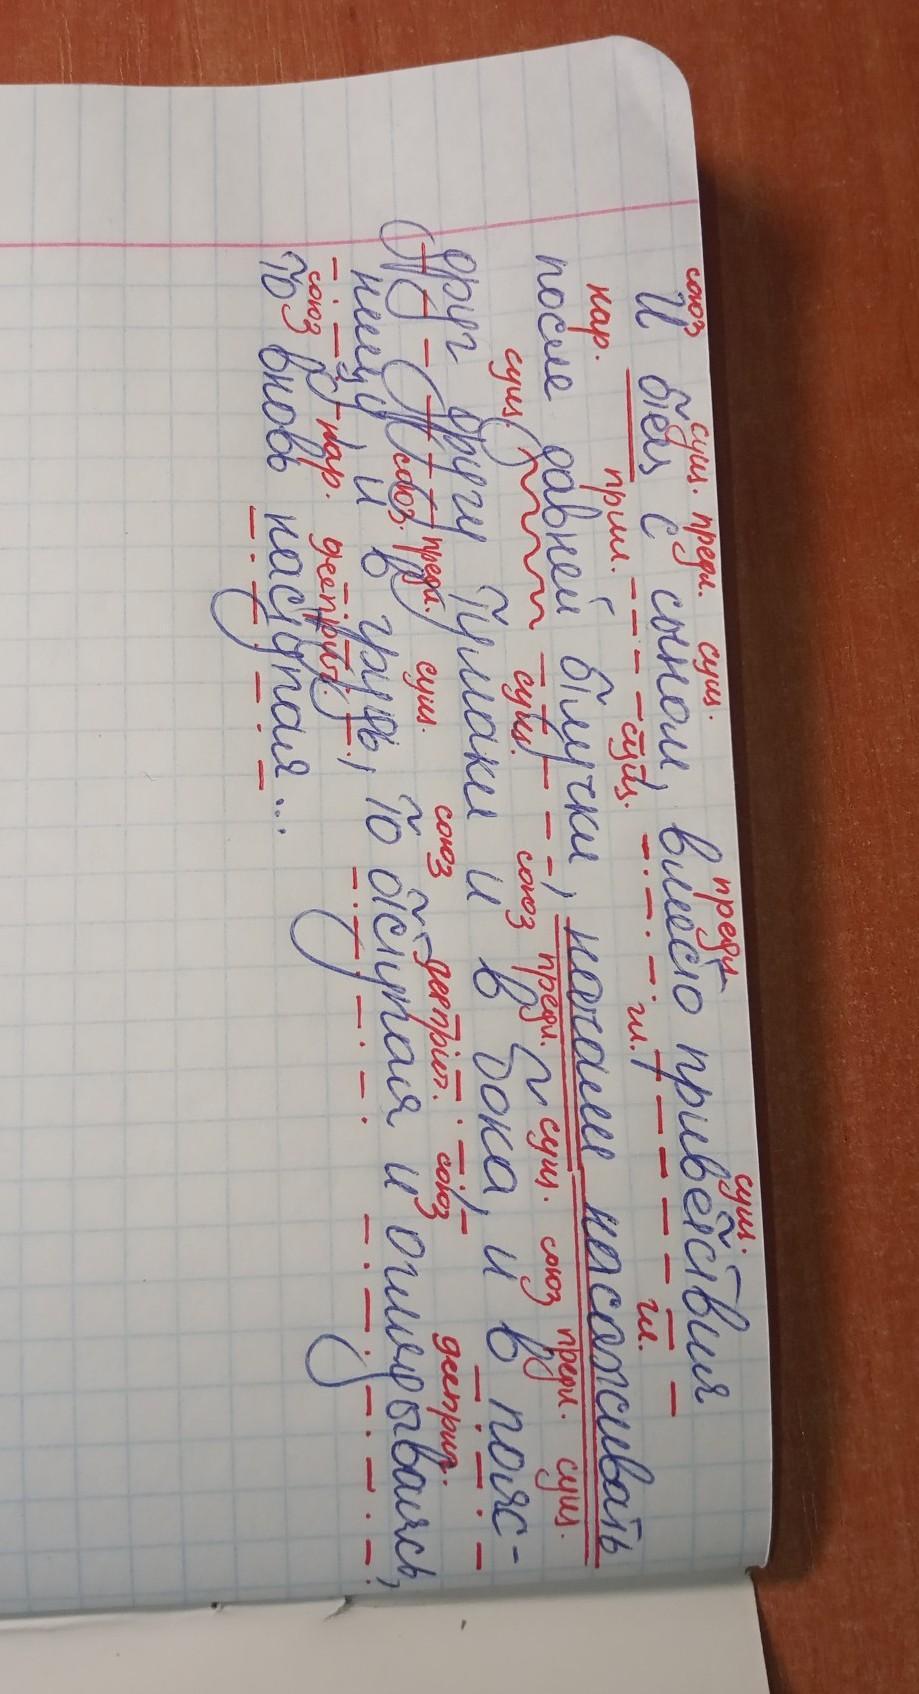 союз сущ. предл. сущ. предл. сущ.
И отец с сыном, вместо приветствия
нар. прил. сущ. гл. гл.
после давней отлучки, начали насаживать
сущ. сущ. союз предл. сущ. союз предл. сущ.
друг другу тумаки и в бока, и в пояс-
союз предл. сущ. союз дееприч. союз дееприч.
ницу, и в грудь, то отступая и оглядываясь,
союз нар. дееприч.
то вновь наступая...